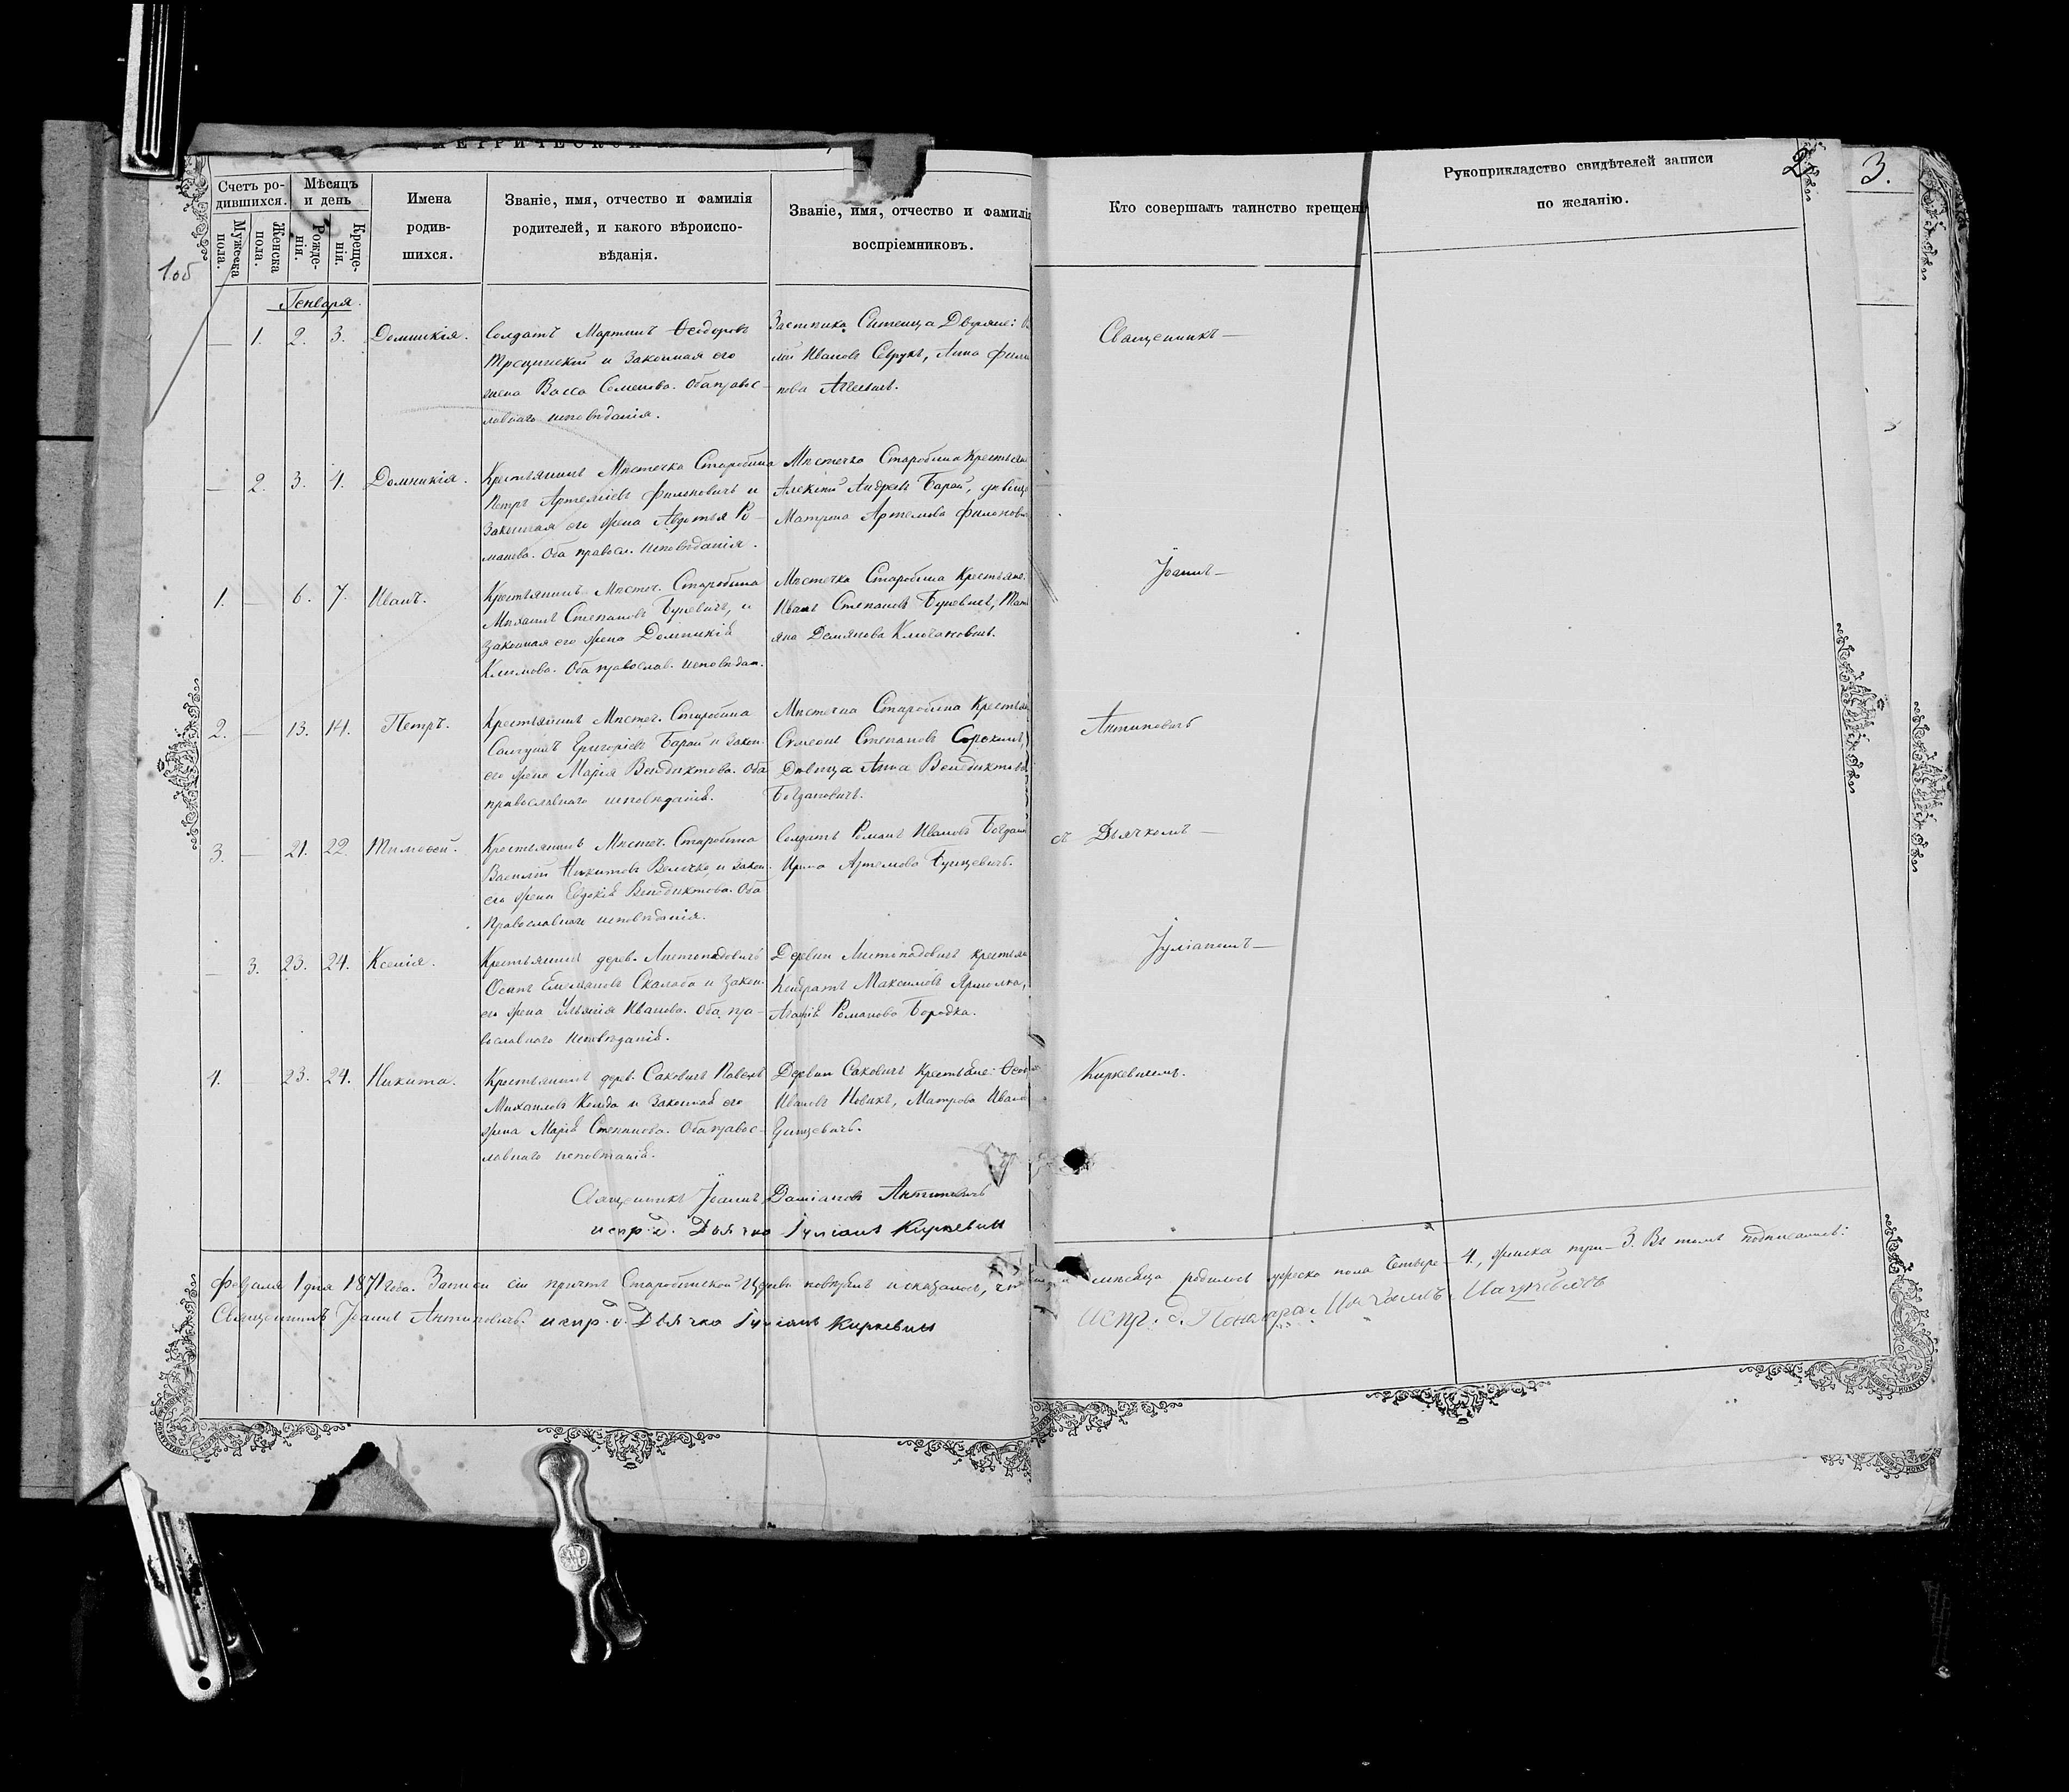 МЕТРИЧЕСКОЙ
Счетъ ро-
дившихся.
Мужеска
пола.
Женска
пола.
Мѣсяцъ
и день
Рожде-
нія.
Креще-
нія.
Имена
родив-
шихся.
Званіе, имя, отчество и фамилія
родителей, и какого вѣроиспо-
вѣданія.
Званіе, имя, отчество и фамилія
воспріемниковъ.
Кто совершалъ таинство крещені
Рукоприкладство свидѣтелей записи
по желанію.
2
3.
1об
Генваря.
— 1. 2. 3. Домникія.
Солдатъ Мартинъ Ѳеодоровъ
и Законная его
жена Васса Семенова. Оба правос-
лавнаго исповѣданія.
Застѣнка Дворяне:
Ивановъ Севрукъ, Анна
— 2. 3. 4. Домникія.
Крестьянинъ Мѣстечка Старобина
Петръ Артеміевъ Филиповичъ и
Законная его жена Авдотья Ро-
манова. Оба правосл. исповѣданія.
Мѣстечка Старобина Крестьян
Алексій Андреевъ Барай, дѣвица
Матрона Артемова Филипови
1. — 6. 7. Иванъ.
Крестьянинъ Мѣстеч. Старобина
Михаилъ Степановъ Буневичъ, и
законная его жена Домникія
Климова. Оба православ. исповѣдан.
Мѣстечка Старобина Крестьяне.
Иванъ Степановъ Буневичъ, Тать
яна Демянова
2. — 13. 14. Петръ.
Крестьянинъ Мѣстеч. Старобина
Григоріевъ Барай и Закон.
его жена Марія Венедиктова. Оба
православнаго исповѣданія.
Мѣстечка Старобина Крестьян
Симеонъ Степановъ Сорокинъ,
Дѣвица Анна Венедиктова
Богдановичъ.
3. — 21. 22. Тимоѳей.
Крестьянинъ Мѣстеч. Старобина
Василій Никитовъ Величко, и Закон.
его жена Евдокія Венедиктова. Оба
Православнаго исповѣданія.
Солдатъ Романъ Ивановъ Богдан
Ирина Артемова
— 3. 23. 24. Ксенія.
Крестьянинъ дерев. Листопадовичъ
Осипъ Емельяновъ Скалаба и закон.
его жена Ульянія Иванова. Оба пра-
вославнаго исповѣданія.
Деревни Листопадовичъ крестьян
Кондратъ Максимовъ Ярмолка,
Агафія Романова Бородка.
4. 23. 24. Никита.
Крестьянинъ дерв. Саковичъ Павелъ
Михаиловъ и законная его
жена Марія Степанова. Оба правос-
лавнаго исповѣданія.
Деревни Саковичъ Крестьяне:
Ивановъ Новикъ, Матрона Иванов
Священникъ —
Іоаннъ —
Антиповичъ
съ Дьячкомъ —
Іуліаномъ —
Киркевичемъ.
Священникъ Іоаннъ Даміановъ Антиповичъ
испр. д. Дьячка Іуліанъ Киркевичъ
Февраля 1 дня 1871 года. Записи сіи причтъ Старобинской Церкви повѣрилъ и оказалось, что
мѣсяца родилось мужеска пола четыре – 4., женска три – 3. Въ томъ подписались:
Священникъ Іоаннъ Антиповичъ. испр. д. Дьячка Іуліанъ Киркевичъ
Испр. д. Пономаря